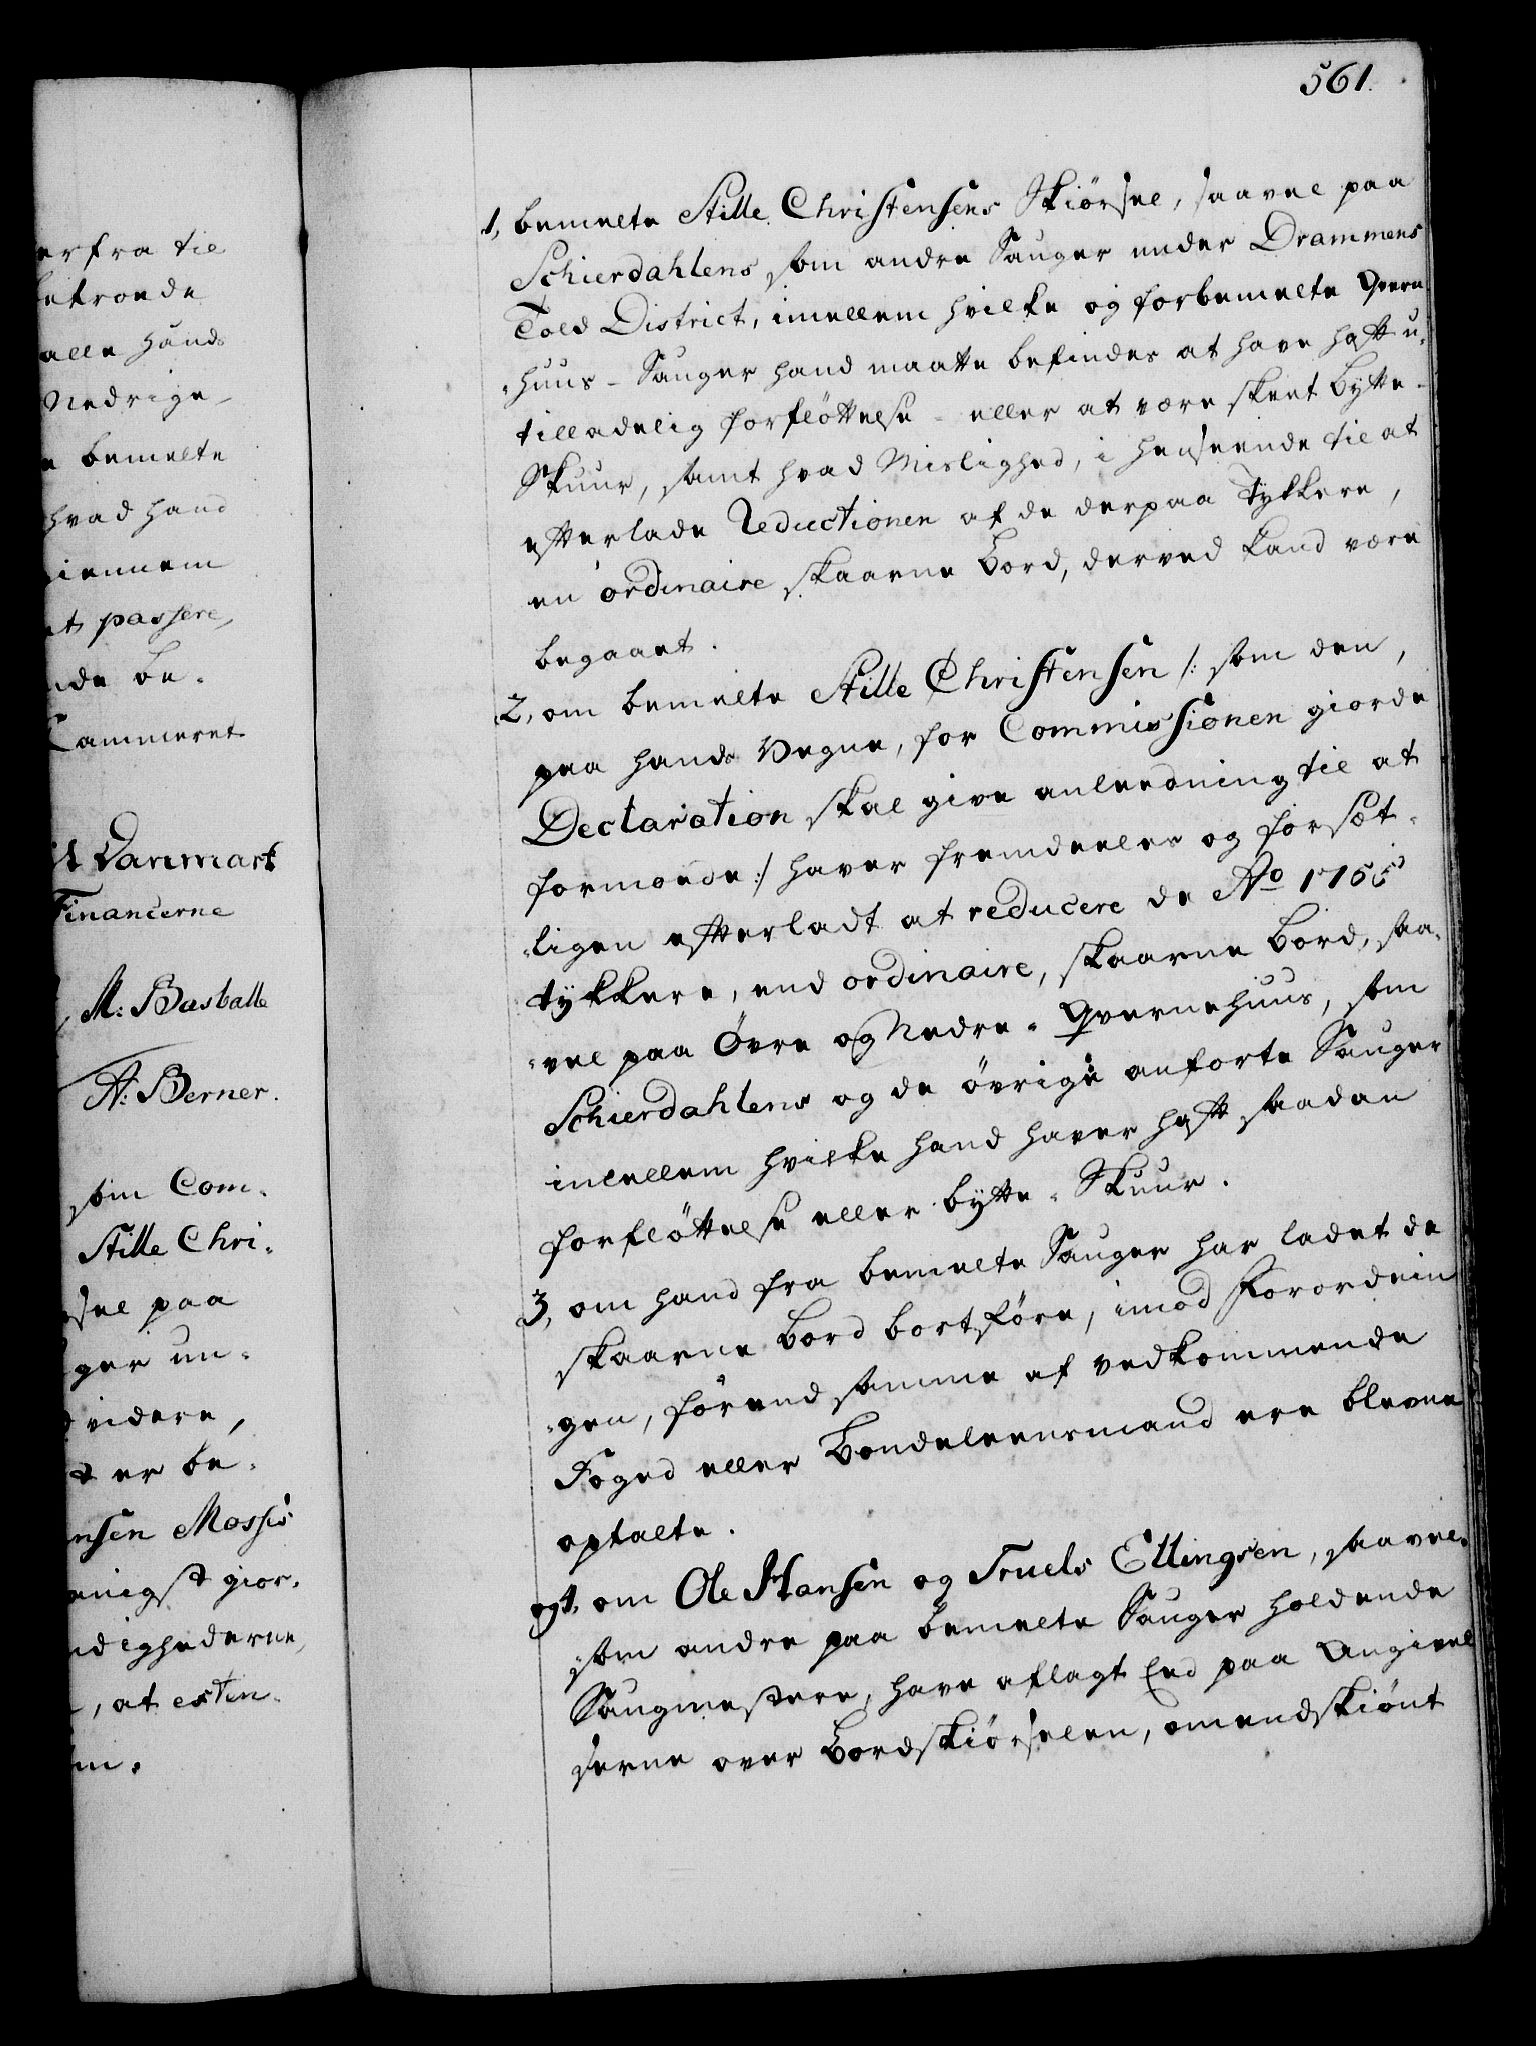 erfra til
betroede
alle hands
Nedrige
e bemelte
hvad hand
giennem
at passere,
nde be-
Cammeret
st Danmark
Financerne
M: Basballe
A: Berner.
som Com-
Stille Chri-
rsel paa
ger un-
videre,
er be-
nsen Mossis
nigst gior-
ndighederne,
, at exten-
m.
561.
1, bemelte Stille Christensens Skiörsel, saavel paa
Schierdahlens som andre Sauger under Drammens
Told District, imellem hvilke og forbemelte Qverne
-huus - Sauger hand maatte befindes at have haft u-
tilladelig forflöttelse - eller at være skeet bytte-
Skuur, samt hvad Mislighed, i henseende til at
efterlade Reductionen af de derpaa tykkere,
en ordinaire skaarne Bord, derved kand være
begaaet.
2, om bemelte Stille Christensen /: som den,
paa hands Vegne, for Commissionen giorde
Declaration skal give anleedning til at
formoede :/ haver fremdeeles og forsæt-
-ligen efterladt at reducere de Aº 1755
tykkere, end ordinaire, skaarne Bord, saa-
-vel paa Övre og Nedre - Qvernehuus, som
Schierdahlens og de övrige anforte Sauger
imellem hvilke hand haver haft saadan
forflöttelse eller bytte - Skuur.
3, om hand fra bemelte Sauger har ladet de
skaarne Bord bortföre, imod Forordnin
-gen, förend samme af vedkommende
Foged eller Bondeleensmand ere blevne
optalte.
og 4, om Ole Hansen og Truels Ellingsen, saavel
som andre paa bemelte Sauger holdende
Saugmestere, have aflagt Eed paa Angivel
serne over Bordskiörselen, omendskiönt